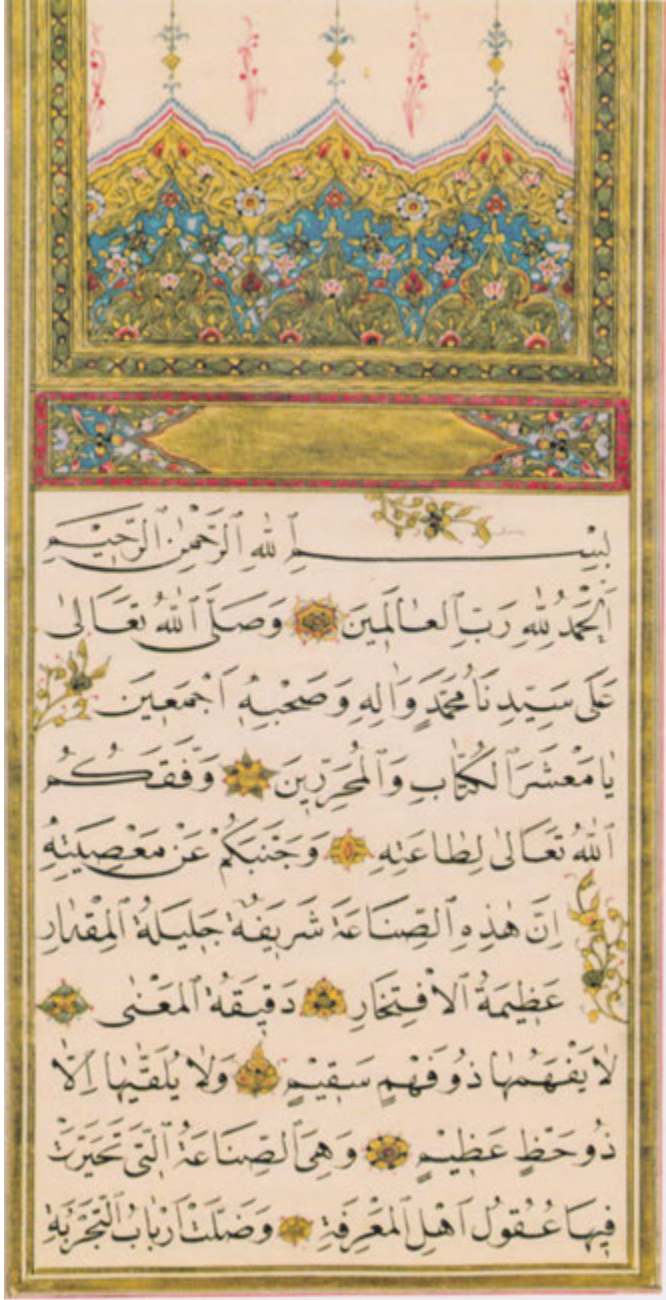 بِسْمِ اللهِ الرَّحْمٰنِ الرَّحِيْمِ
اَلْحَمْدُ لِلّٰهِ رَبِّ الْعَالَمِينَ وَصَلَّى اللهُ تَعَالٰى
عَلٰى سَيِّدِنَا مُحَمَّدٍ وَاٰلِهِ وَصَحْبِهِ اَجْمَعِينَ
يَا مَعْشَرَ الْكُتَّابِ وَالْمُحَرِّرِينَ وَفَّقَكُمُ
اللهُ تَعَالٰى لِطَاعَتِهِ وَجَنَّبَكُمْ عَنْ مَعْصِيَتِهِ
اِنَّ هٰذِهِ الصِّنَاعَةَ شَرِيفَةٌ جَلِيلَةُ الْمِقْدَارِ
عَظِيمَةُ الْاِفْتِخَارِ دَقِيقَةُ الْمَعْنٰى
لَا يَفْهَمُهَا ذُو فَهْمٍ سَقِيْمٍ وَلَا يُلَقّٰيهَا اِلَّا
ذُو حَظٍّ عَظِيْمٍ وَهِيَ الصِّنَاعَةُ الَّتِي تَحَيَّرَتْ
فِيهَا عُقُولُ اَهْلِ الْمَعْرِفَةِ وَضَلَّتْ اَرْبَابُ التَّجْرُبَةِ